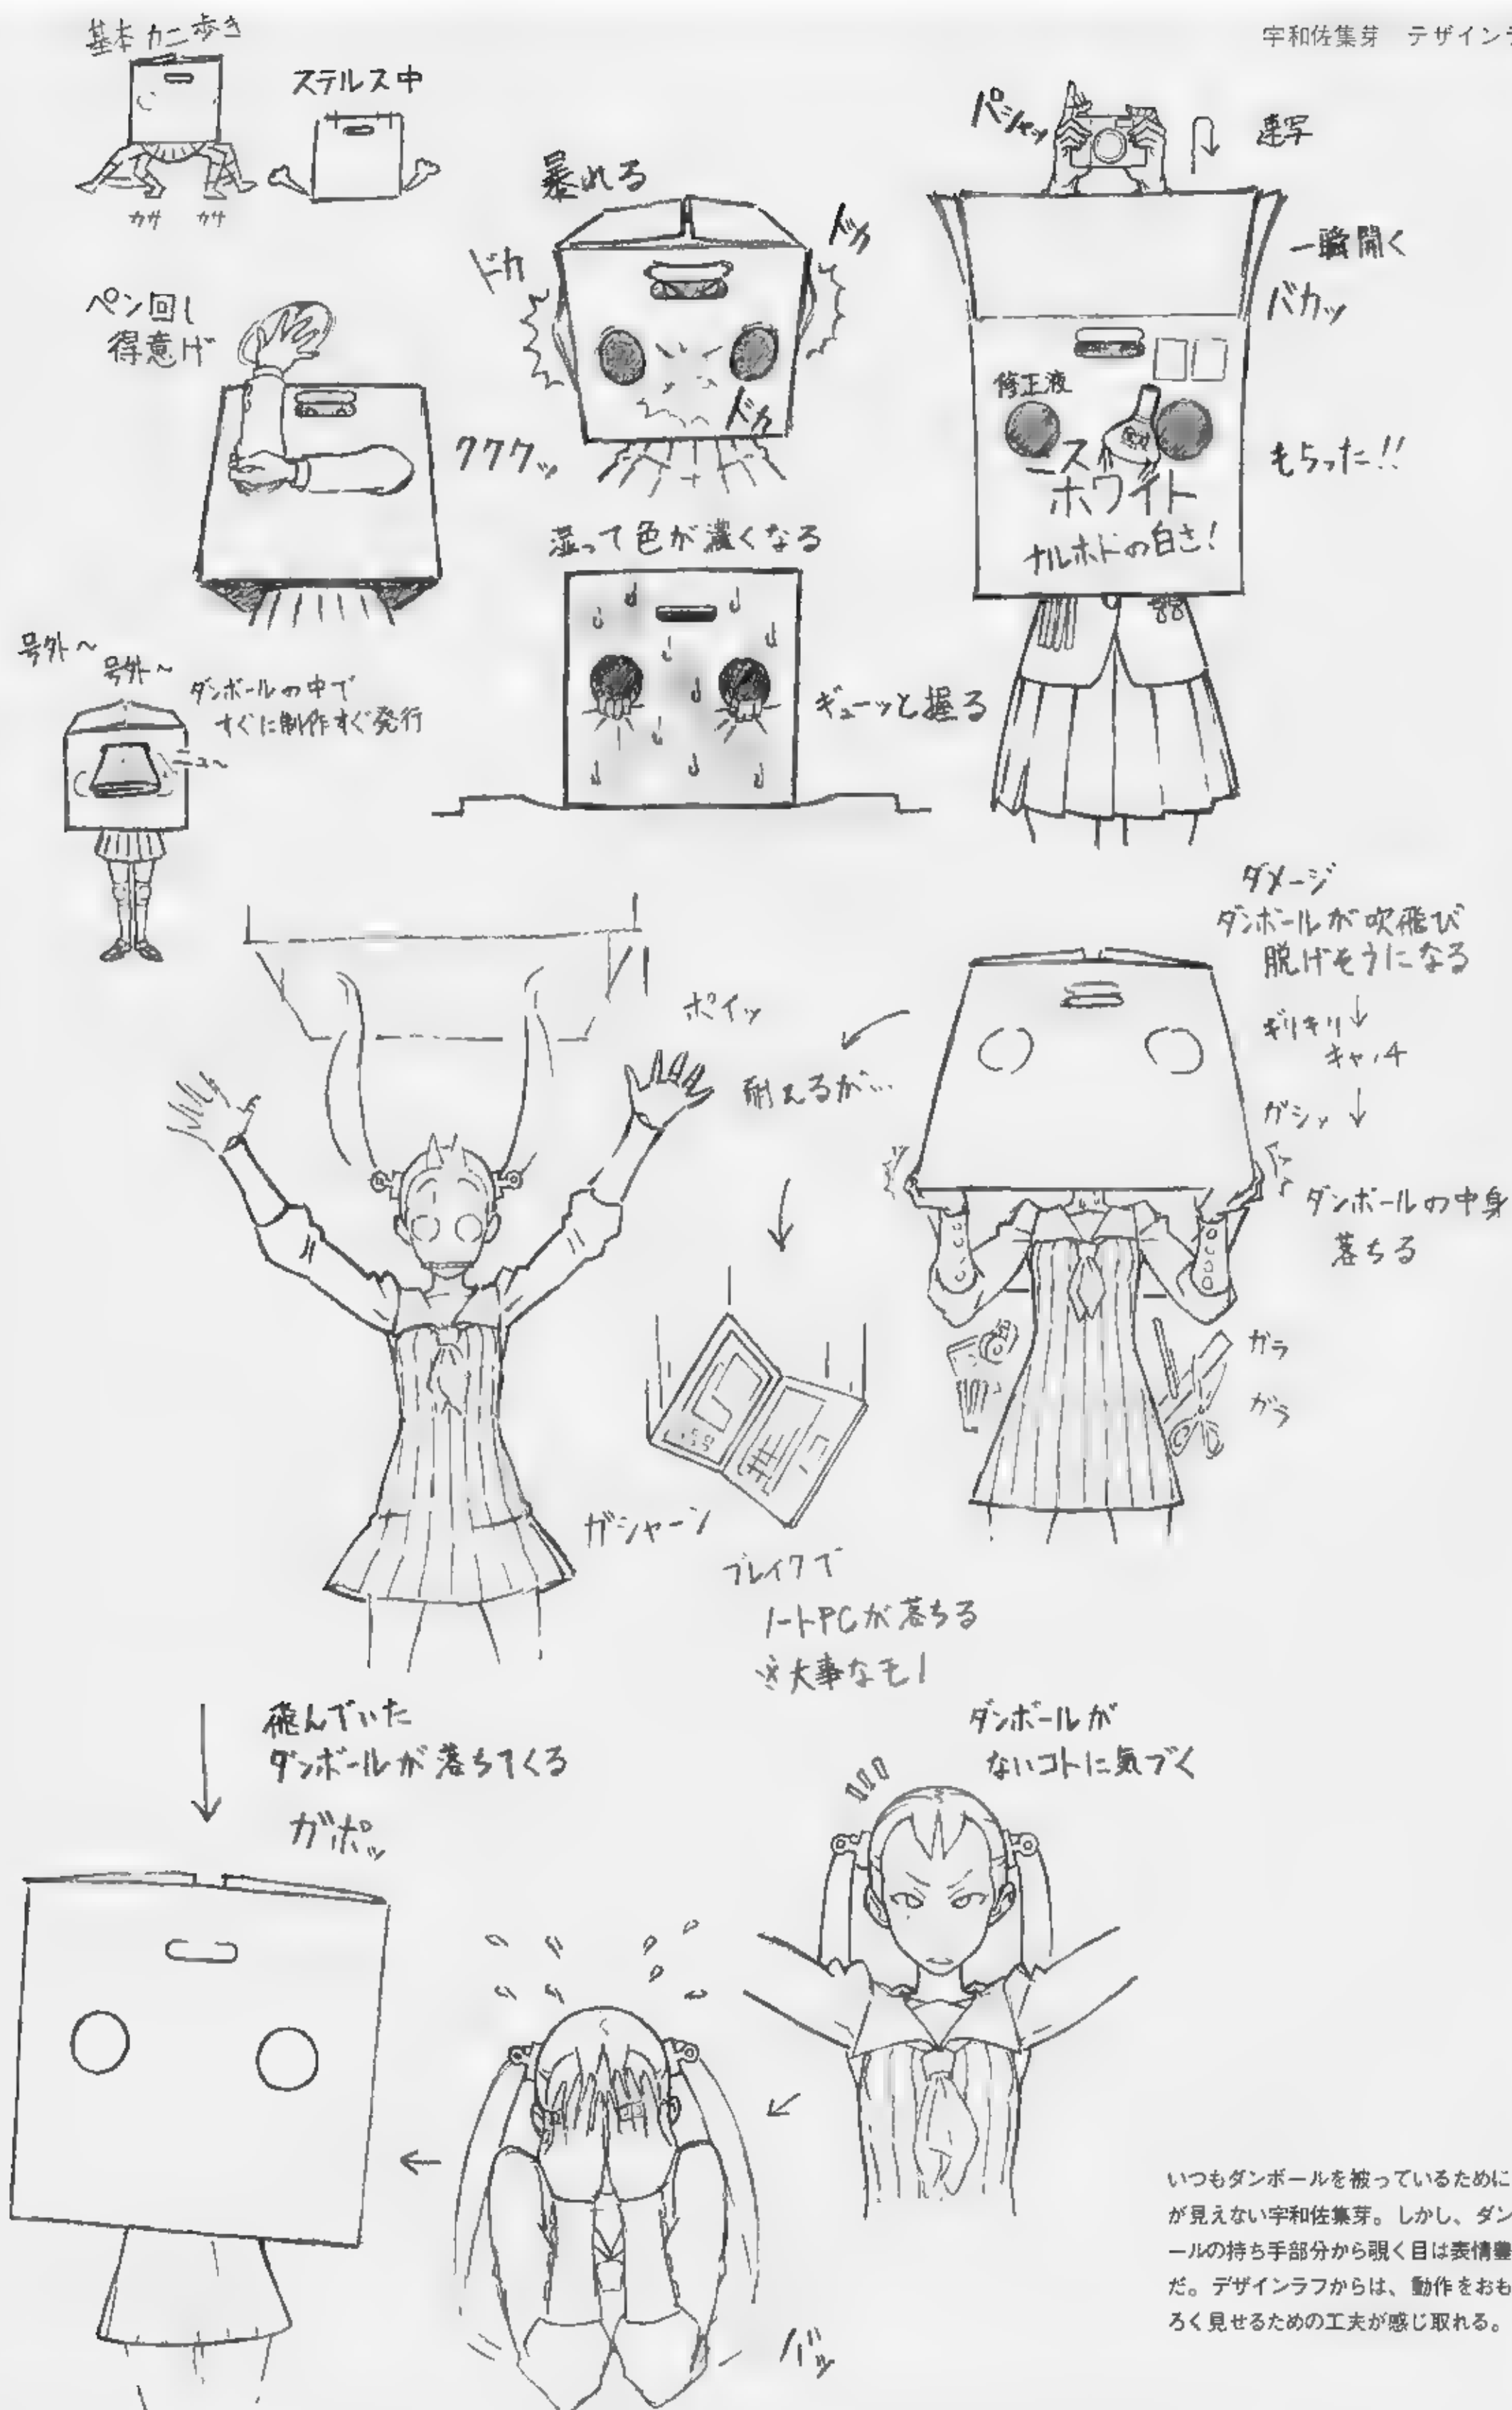 宇和佐集芽 デザインラ
基本カニ歩き
カサ カサ
ステルス中
ペン回し
得意げ
ククク
暴れる
ドカ
ドカ
ドカ
パシャッ
連写
一瞬開く
バカッ
修正液
ース
ホワイト
ナルホドの白さ!
もらった!!
湿って色が濃くなる
ギューッと握る
号外〜
号外〜
ダンボールの中で
すぐに制作すぐ発行
ニュ〜
ダメージ
ダンボールが吹飛び
脱げそうになる
↓
ギリギリ
キャッチ
↓
ガシッ
ダンボールの中身
落ちる
ガラ
ガラ
耐えるが…
ポイッ
ガシャーン
ブレイクで
ノートPCが落ちる
※大事なモノ
ダンボールが
ないコトに気づく
バッ
飛んでいた
ダンボールが落ちてくる
ガポッ
いつもダンボールを被っているために
が見えない宇和佐集芽。しかし、ダン
ールの持ち手部分から覗く目は表情豊
だ。デザインラフからは、動作をおも
ろく見せるための工夫が感じ取れる。